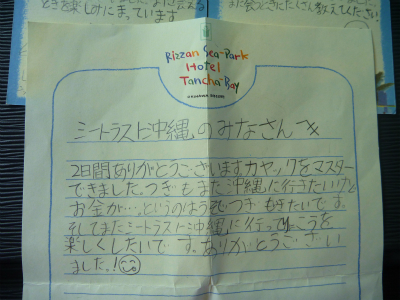 ときを楽しみにまっています
また会うときにたくさん教えてください
Rizzan Sea-Park
Hotel
Tancha-Bay
シートラスト沖縄のみなさんへ
2日間ありがとうございますカヤックをマスター
できました。つぎもまた沖縄に行きたいけど
お金が…。というのはうそでつぎもきたいです。
そしてまたシートラスト沖縄に行ってりょこうを
楽しくしたいです。ありがとうござい
ました。!